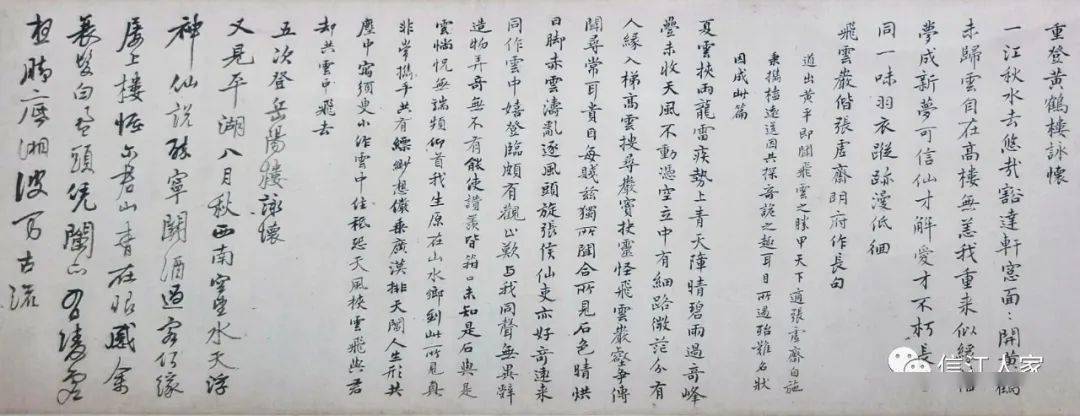 重登黃鶴樓詠懷
一江秋水去悠哉豁達軒窓面:開黃鶴
未歸雲自在高樓無恙我重来似經
夢成新夢可信仙才解愛才不朽長
同一味羽衣蹤跡漫低徊
飛雲巖偕張虛齋明府作長句
道出黃平即聞飛雲之勝甲天下適張虛齋自施
秉攜榼遠送因共探奇詭之趣耳目所遇殆難名狀
因成此篇
夏雲挾雨龍雷疾勢上青天障晴碧雨過奇峰
疊未收天風不動憑空立中有細路微茫分有
人緣入梯高雲搜尋巖竇抉靈怪飛雲巖壑爭傳
聞尋常耳貴目每賤茲獨所聞合所見石色晴烘
日脚赤雲濤亂逐風頭旋張侯仙吏亦好奇速来
同作雲中嬉登臨頗有觀止歎与我同聲無異辭
造物弄奇無不有能使讚羨皆箝口未知是石與是
雲惝怳無端頻仰首我生原在山水鄉到此所見真
非常攜手共有縹緲想儼乘廣漠排天閶人生形共
塵中寓須臾小作雲中住秪恐天風挾雲飛與君
却共雲中飛去
五次登岳陽樓詠懷
又見平湖八月秋西南空望水天浮
神仙說破寧關酒過客何緣
屢上樓恠尔君山青在眼感余
衰鬢白盈頭凭闌
湘波万古流
信江人家